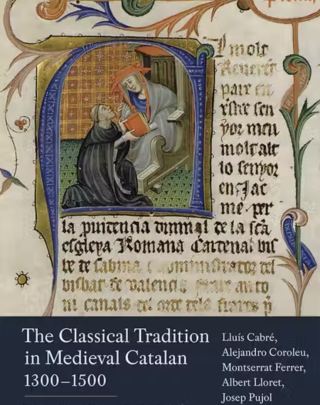 l molt
Reverēt
pare en
vr̄e sen
yor meu
molt alt
lo senyor
en Jac
me per
la
esgleya Romana Cardenal bis
be de sabina administrador del
bisbat de valencia frare anto
ni canals del orde dels frares
The Classical Tradition
in Medieval Catalan
1300–1500
Lluís Cabré,
Alejandro Coroleu,
Montserrat Ferrer,
Albert Lloret,
Josep Pujol